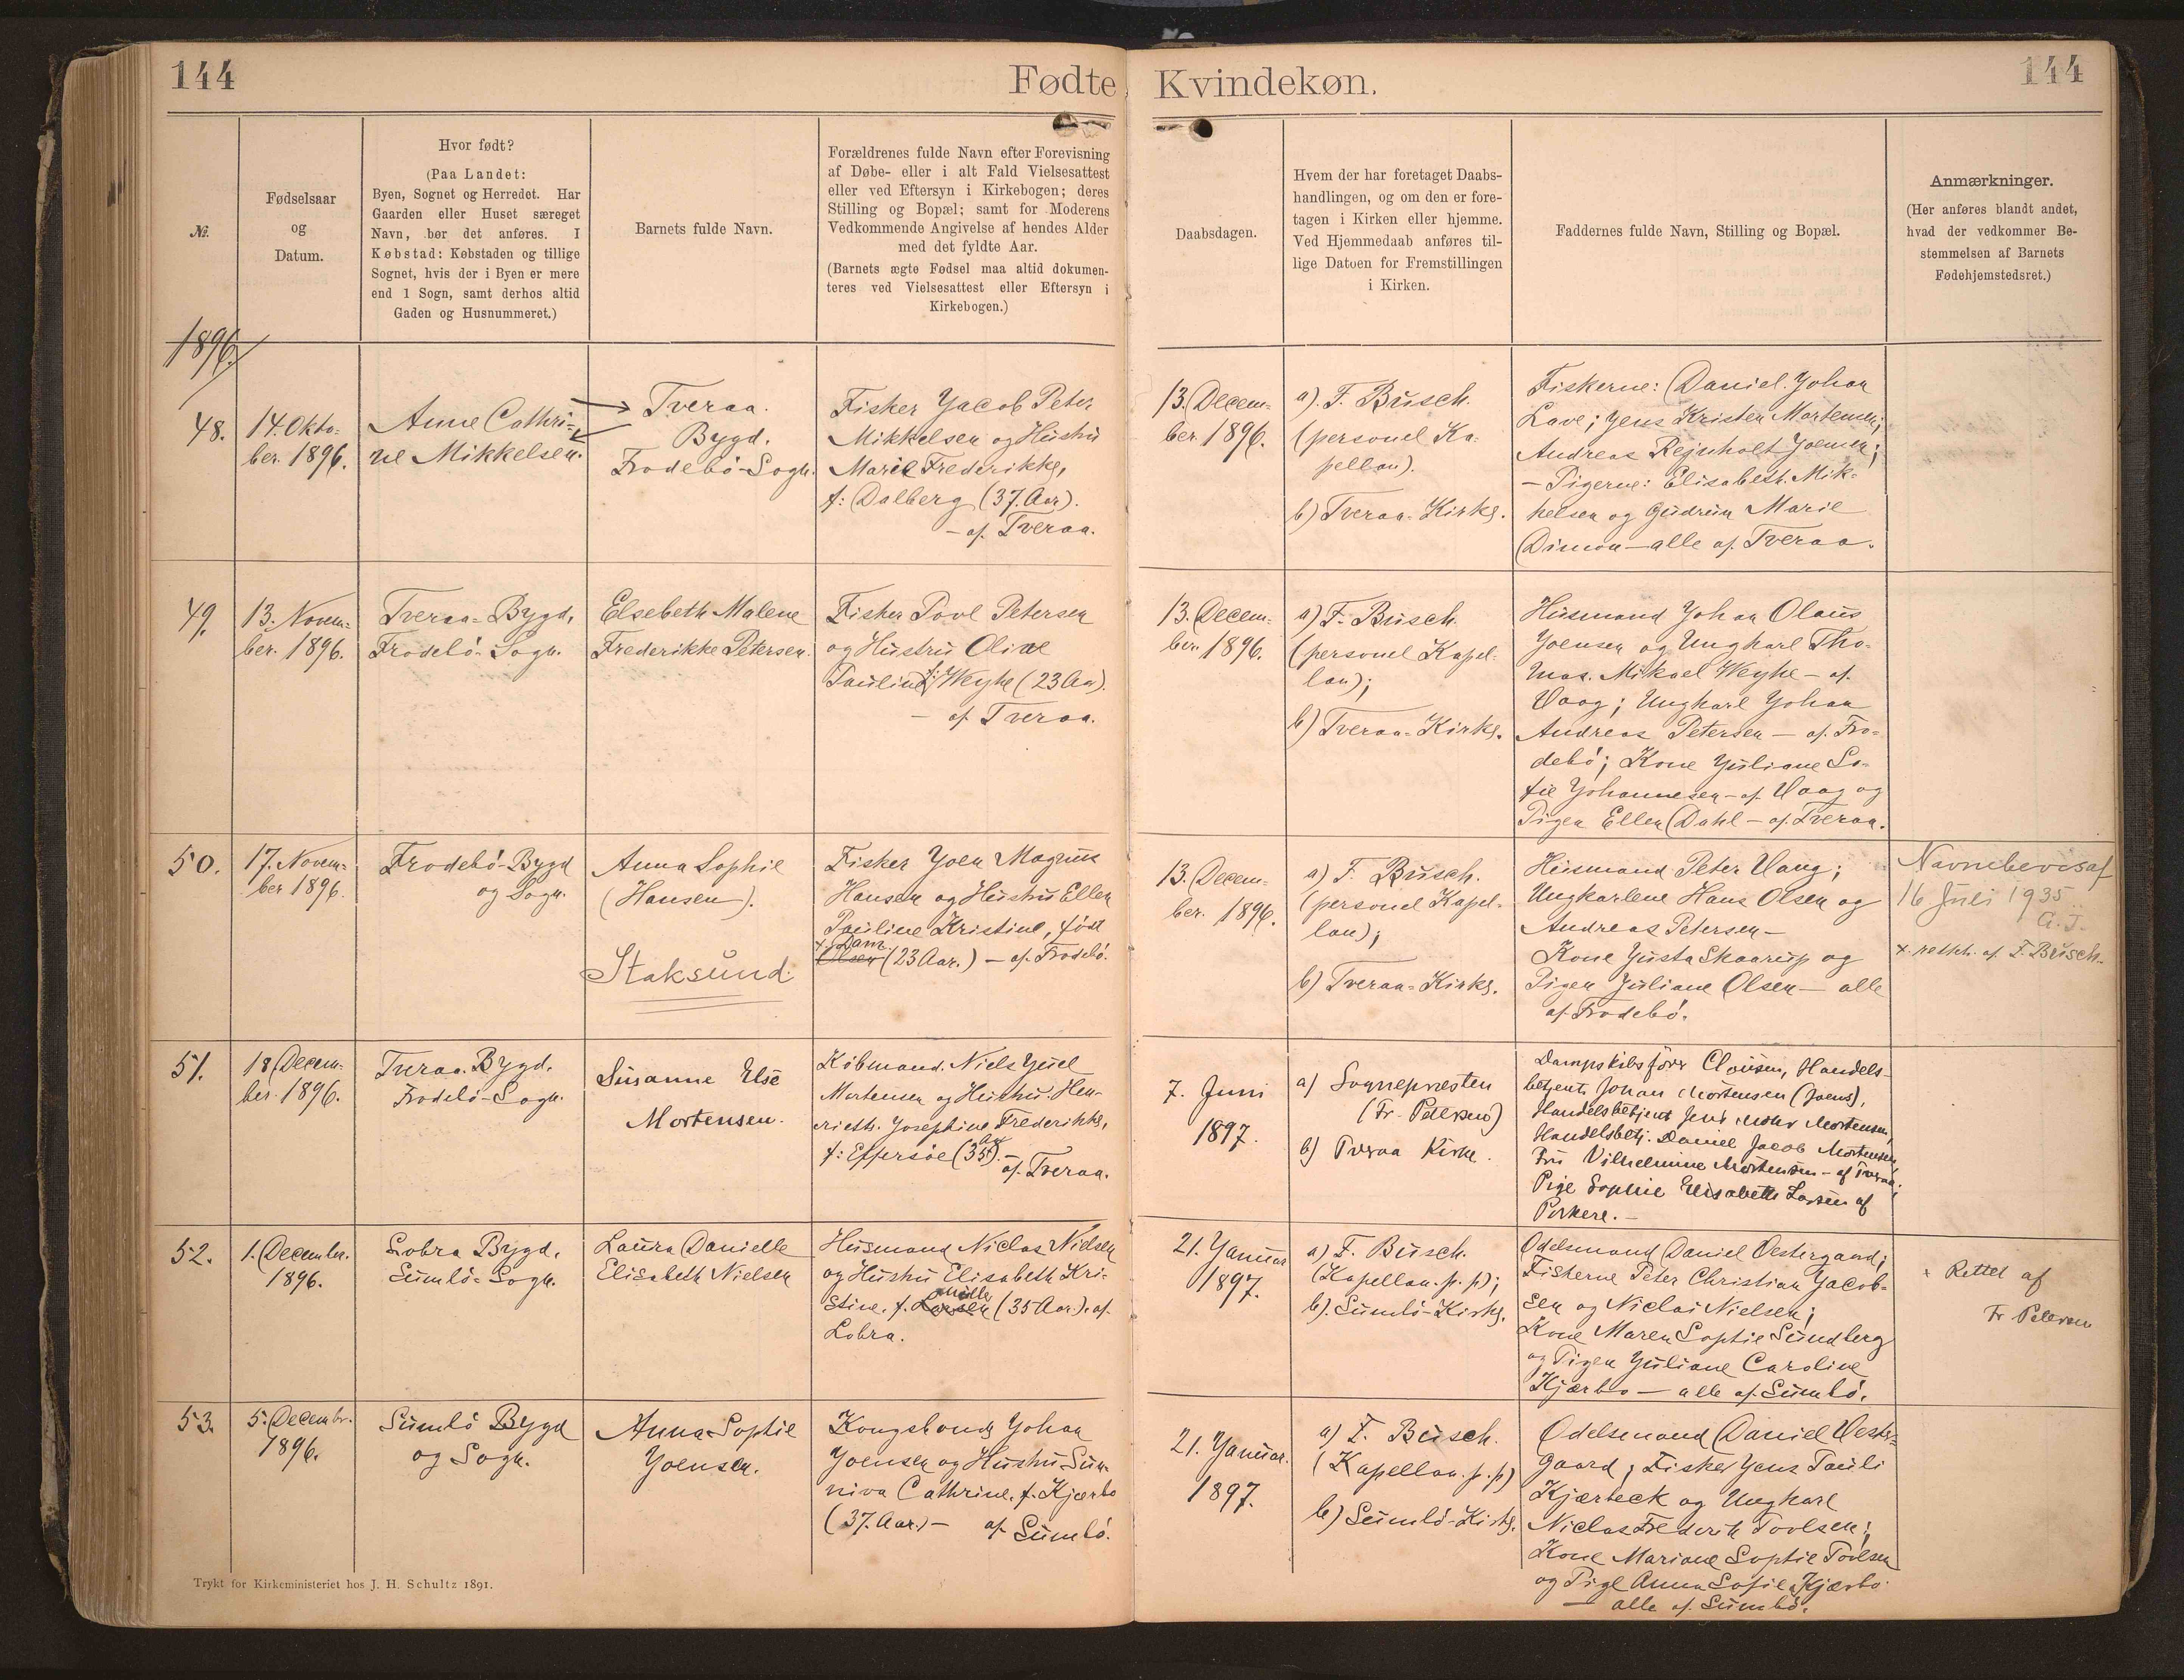 144
Fødte
Kvindekøn.
144
№.
Fødselsaar
og
Datum.
Hvor født?
(Paa Landet:
Byen, Sognet og Herredet. Har
Gaarden eller Huset særeget
Navn, bør det anføres. I
Købstad: Købstaden og tillige
Sognet, hvis der i Byen er mere
end 1 Sogn, samt derhos altid
Gaden og Husnummeret.)
Barnets fulde Navn.
Forældrenes fulde Navn efter Forevisning
af Døbe- eller i alt Fald Vielsesattest
eller ved Eftersyn i Kirkebogen; deres
Stilling og Bopæl; samt for Moderens
Vedkommende Angivelse af hendes Alder
med det fyldte Aar.
(Barnets ægte Fødsel maa altid dokumen-
teres ved Vielsesattest eller Eftersyn i
Kirkebogen.)
Daabsdagen.
Hvem der har foretaget Daabs-
handlingen, og om den er fore-
tagen i Kirken eller hjemme.
Ved Hjemmedaab anføres til-
lige Datoen for Fremstillingen
i Kirken.
Faddernes fulde Navn, Stilling og Bopæl.
Anmærkninger.
(Her anføres blandt andet,
hvad der vedkommer Be-
stemmelsen af Barnets
Fødehjemstedsret.)
1896.
48.
14. Okto-
ber. 1896.
Anne Cathri-
ne Mikkelsen.
Tveraa.
Bygd.
Frodebö-Sogn.
Fisker Yacob Peter
Mikkelsen og Hustru
Marie Frederikke,
f: Dalberg (37. Aar).
- af Tveraa.
13. Decem-
ber. 1896.
a). F. Busch.
(personel Ka-
pellan).
b) Tveraa-Kirke.
Fiskerne: Daniel Yohan
Lave; Yens Kristen Mortensen;
Andreas Rejnholt Yoensen;
- Pigerne: Elisabeth Mik-
kelsen og Gudrun Marie
Dimon - alle af Tveraa.
49.
13. Novem-
ber. 1896.
Tveraa-Bygd,
Frodebö-Sogn.
Elsebeth Malene
Frederikke Petersen.
Fisker Povl Petersen
og Hustru Oline
Pauline f: Weyhe (23 Aar).
- af Tveraa.
13. Decem-
ber. 1896.
a) F. Busch.
(personel Kapel-
lan);
b) Tveraa-Kirke.
Husmand Yohan Olaus
Yoensen og Ungkarl Tho-
mas. Mikael Weyhe - af.
Vaag; Ungkarl Yohan
Andreas Petersen - af. Fro-
debö; Kone Yuliane So-
fie Yohannesen - af. Vaag og
Pigen Ellen Dahl - af. Tveraa.
50.
17. Novem-
ber 1896.
Frodebö-Bygd
og Sogn.
Anna Sophie
(Hansen).
Staksund.
Fisker Yoen Magnus
Hansen og Hustru Ellen
Pauline Kristine, födt
x Dam
Olsen (23 Aar.) - af. Frodebö.
13. Decem-
ber. 1896.
a) F. Busch.
(personel Kapel-
lan);
b) Tveraa-Kirke.
Husmand Peter Vang;
Ungkarlene Hans Olsen og
Andreas Petersen -
Kone Yusta Skaarup og
Pigen Yuliane Olsen - alle
af. Frodebö.
Navnebevis af
16 Juli 1935
G. J.
x. rettet. af F. Busch.
51.
18 Decem-
ber. 1896.
Tveraa. Bygd.
Frodebö-Sogn.
Susanne Else
Mortensen.
Köbmand. Niels Yuel
Mortensen og Hustru. Hen-
riette. Yosephine Frederikke,
f: Effersöe (35 Aar). -
af. Tveraa.
7. Juni
1897.
a) Sognepræsten
(Fr. Petersen)
b) Tveraa Kirke.
Dampskibsförer Clausen, Handels-
betjent Johan Mortensen (Joens),
Handelsbetjent Jens Mohr Mortensen,
Handelsbetj. Daniel Jacob Mortensen,
Fru Vilhelmine Mortensen - af Tveraa;
Pige Sophie Elisabeth Larsen af
Porkere. -
52.
1. December.
1896.
Lobra Bygd.
Sumbö-Sogn.
Laura Danielle
Elisabeth Nielsen
Husmand Niclas Nielsen
og Hustru Elisabeth Kri-
stine. f. Larsen (35 Aar). af.
Lobra.
21. Yanuar
1897.
a) F. Busch.
(Kapellan. p. p);
b). Sumbö-Kirke.
Odelsmand Daniel Oestergaard;
Fiskerne Peter Christian Yacob-
sen og Niclas Nielsen;
Kone Maren Sophie Sundberg
og Pigen Yuliane Caroline
Kjærbo - alle af. Sumbö.
x Rettet af
Fr Petersen
53.
5. Decembr.
1896.
Sumbö Bygd
og Sogn.
Anna Sophie
Yoensen.
Kongsbonde Yohan
Yoensen og Hustru Sun-
niva Cathrine. f. Kjærbo
(37. Aar.) - af Sumbö.
21. Yanuar.
1897.
a) F. Busch.
(Kapellan. p. p)
b) Sumbö-Kirke.
Odelsmand Daniel Vester-
gaard; Fisker Yens Pauli
Kjærbeck og Ungkarl
Niclas Frederik Povlsen;
Kone Mariane Sophie Povlsen
og Pige Anna Sofie Kjærbo
- alle af. Sumbö.
Trykt for Kirkeministeriet hos J. H. Schultz 1891.